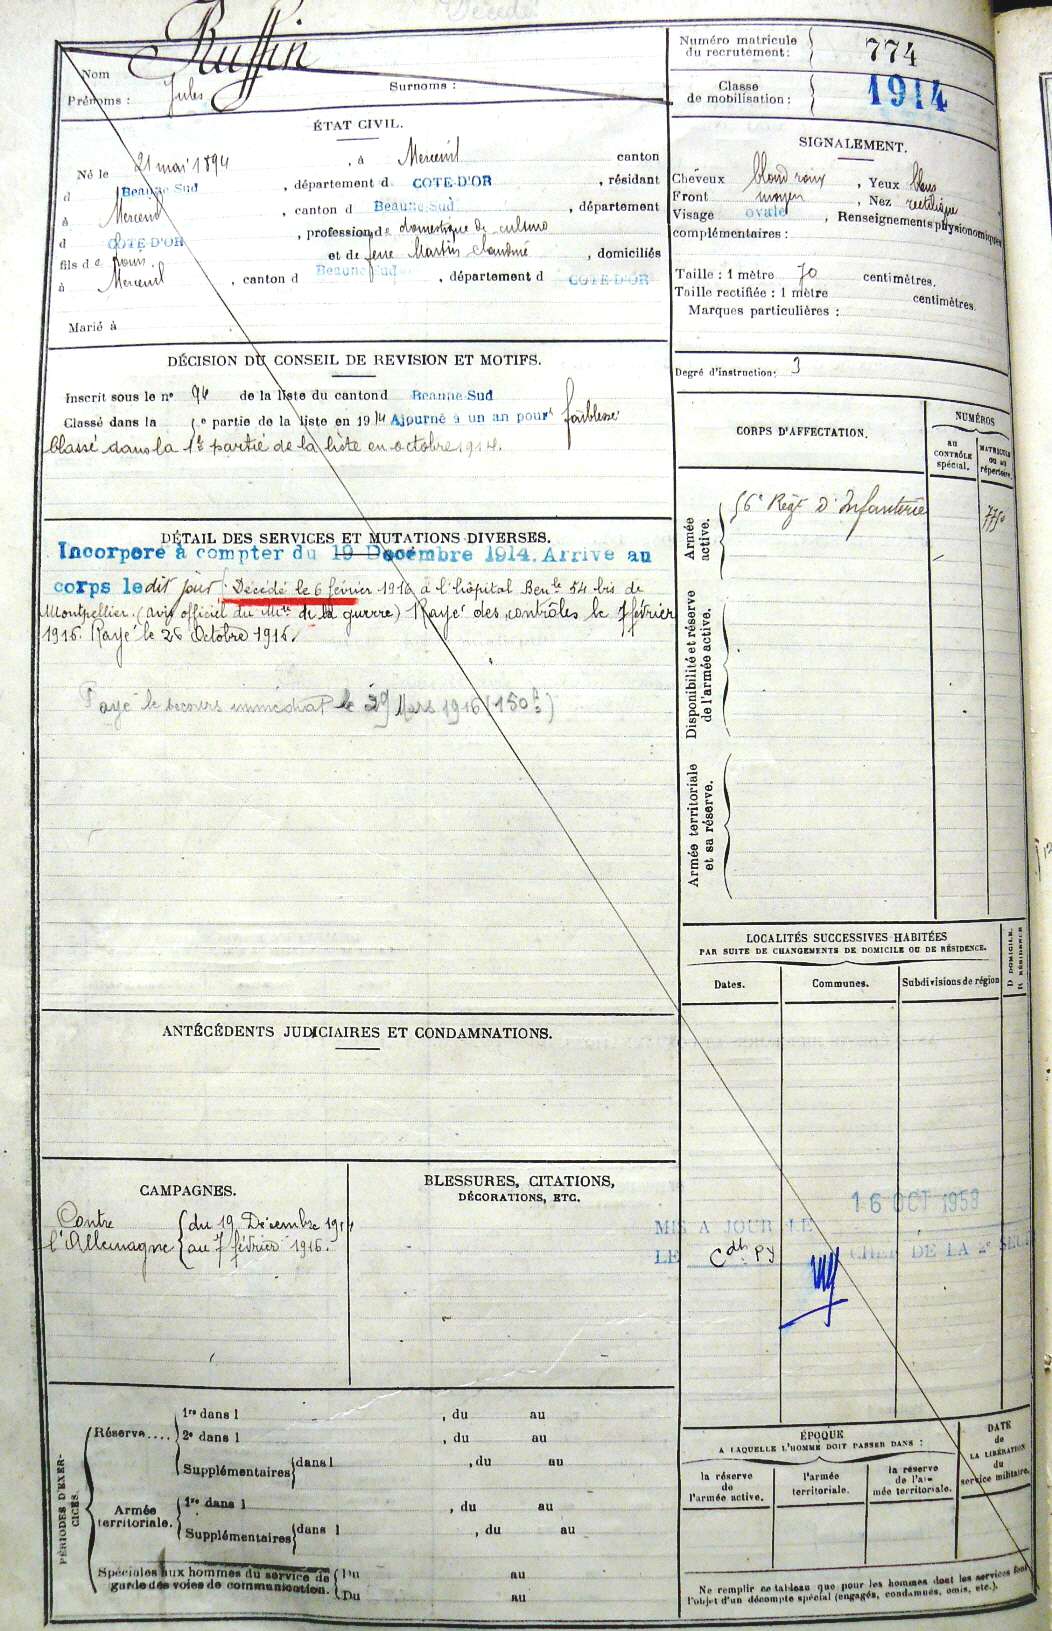 Décédé
Nom Ruffin
Prénoms : Jules Surnoms :
Numéro matricule du recrutement : 774
Classe de mobilisation : 1914
ÉTAT CIVIL.
Né le 21 mai 1894, à Merceuil canton
d Beaune Sud, département d COTE-D'OR, résidant
à Merceuil, canton d Beaune Sud, département
d COTE-D'OR, profession de domestique de culture
fils de Louis et de feue Martin Claudine, domiciliés
à Merceuil, canton d Beaune Sud, département d COTE-D'OR
Marié à
SIGNALEMENT.
Cheveux blond roux, Yeux bleus
Front moyen, Nez rectiligne
Visage ovale, Renseignements physionomiques
complémentaires :
Taille : 1 mètre 70 centimètres.
Taille rectifiée : 1 mètre centimètres.
Marques particulières :
Degré d'instruction : 3
DÉCISION DU CONSEIL DE REVISION ET MOTIFS.
Inscrit sous le n° 94 de la liste du canton d Beaune-Sud
Classé dans la 5e partie de la liste en 1914 Ajourné à un an pour faiblesse
Classé dans la 1re partie de la liste en octobre 1914.
DÉTAIL DES SERVICES ET MUTATIONS DIVERSES.
Incorporé à compter du 19 Décembre 1914. Arrivé au
corps le dit jour. Décédé le 6 février 1916 à l'hôpital Bénle 54 bis de
Montpellier. (avis officiel du Mtre de la guerre) Rayé des contrôles le 7 février
1916. Rayé le 26 Octobre 1916.
Payé le secours immédiat le 29 Mars 1916 (150f)
CORPS D'AFFECTATION.
NUMÉROS
au CONTRÔLE spécial.
MATRICULE ou au répertoire.
Armée active.
56e Régt d'Infanterie
Disponibilité et réserve de l'armée active.
Armée territoriale et sa réserve.
LOCALITÉS SUCCESSIVES HABITÉES
PAR SUITE DE CHANGEMENTS DE DOMICILE OU DE RÉSIDENCE.
Dates. Communes. Subdivisions de région
D DOMICILE.
R RÉSIDENCE
ANTÉCÉDENTS JUDICIAIRES ET CONDAMNATIONS.
CAMPAGNES.
Contre l'Allemagne { du 19 Décembre 1914
au 7 février 1916.
BLESSURES, CITATIONS,
DÉCORATIONS, ETC.
16 OCT 1959
MIS A JOUR LE
LE CHEF DE LA 2e
PÉRIODES D'EXERCICES.
Réserve....
1re dans l , du au
2e dans l , du au
Supplémentaires dans l , du au
Armée territoriale.
1re dans l , du au
Supplémentaires dans l , du au
Spéciales aux hommes du service de Du au
garde des voies de communication. Du au
ÉPOQUE
A LAQUELLE L'HOMME DOIT PASSER DANS :
la réserve de l'armée active.
l'armée territoriale.
la réserve de l'armée territoriale.
DATE de LA LIBÉRATION du service militaire.
Ne remplir ce tableau que pour les hommes dont les services font
l'objet d'un décompte spécial (engagés, condamnés, omis, etc.).